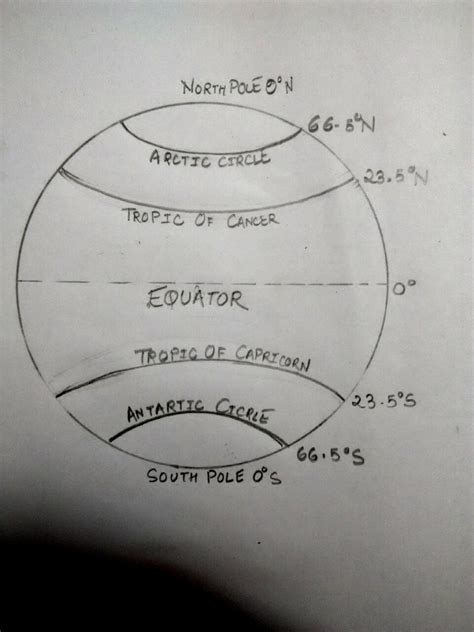 NORTH POLE 0° N
66.5°N
ARCTIC CIRCLE
23.5°N
TROPIC OF CANCER
EQUATOR
0°
TROPIC OF CAPRICORN
23.5°S
ANTARTIC CICRLE
66.5°S
SOUTH POLE 0°S